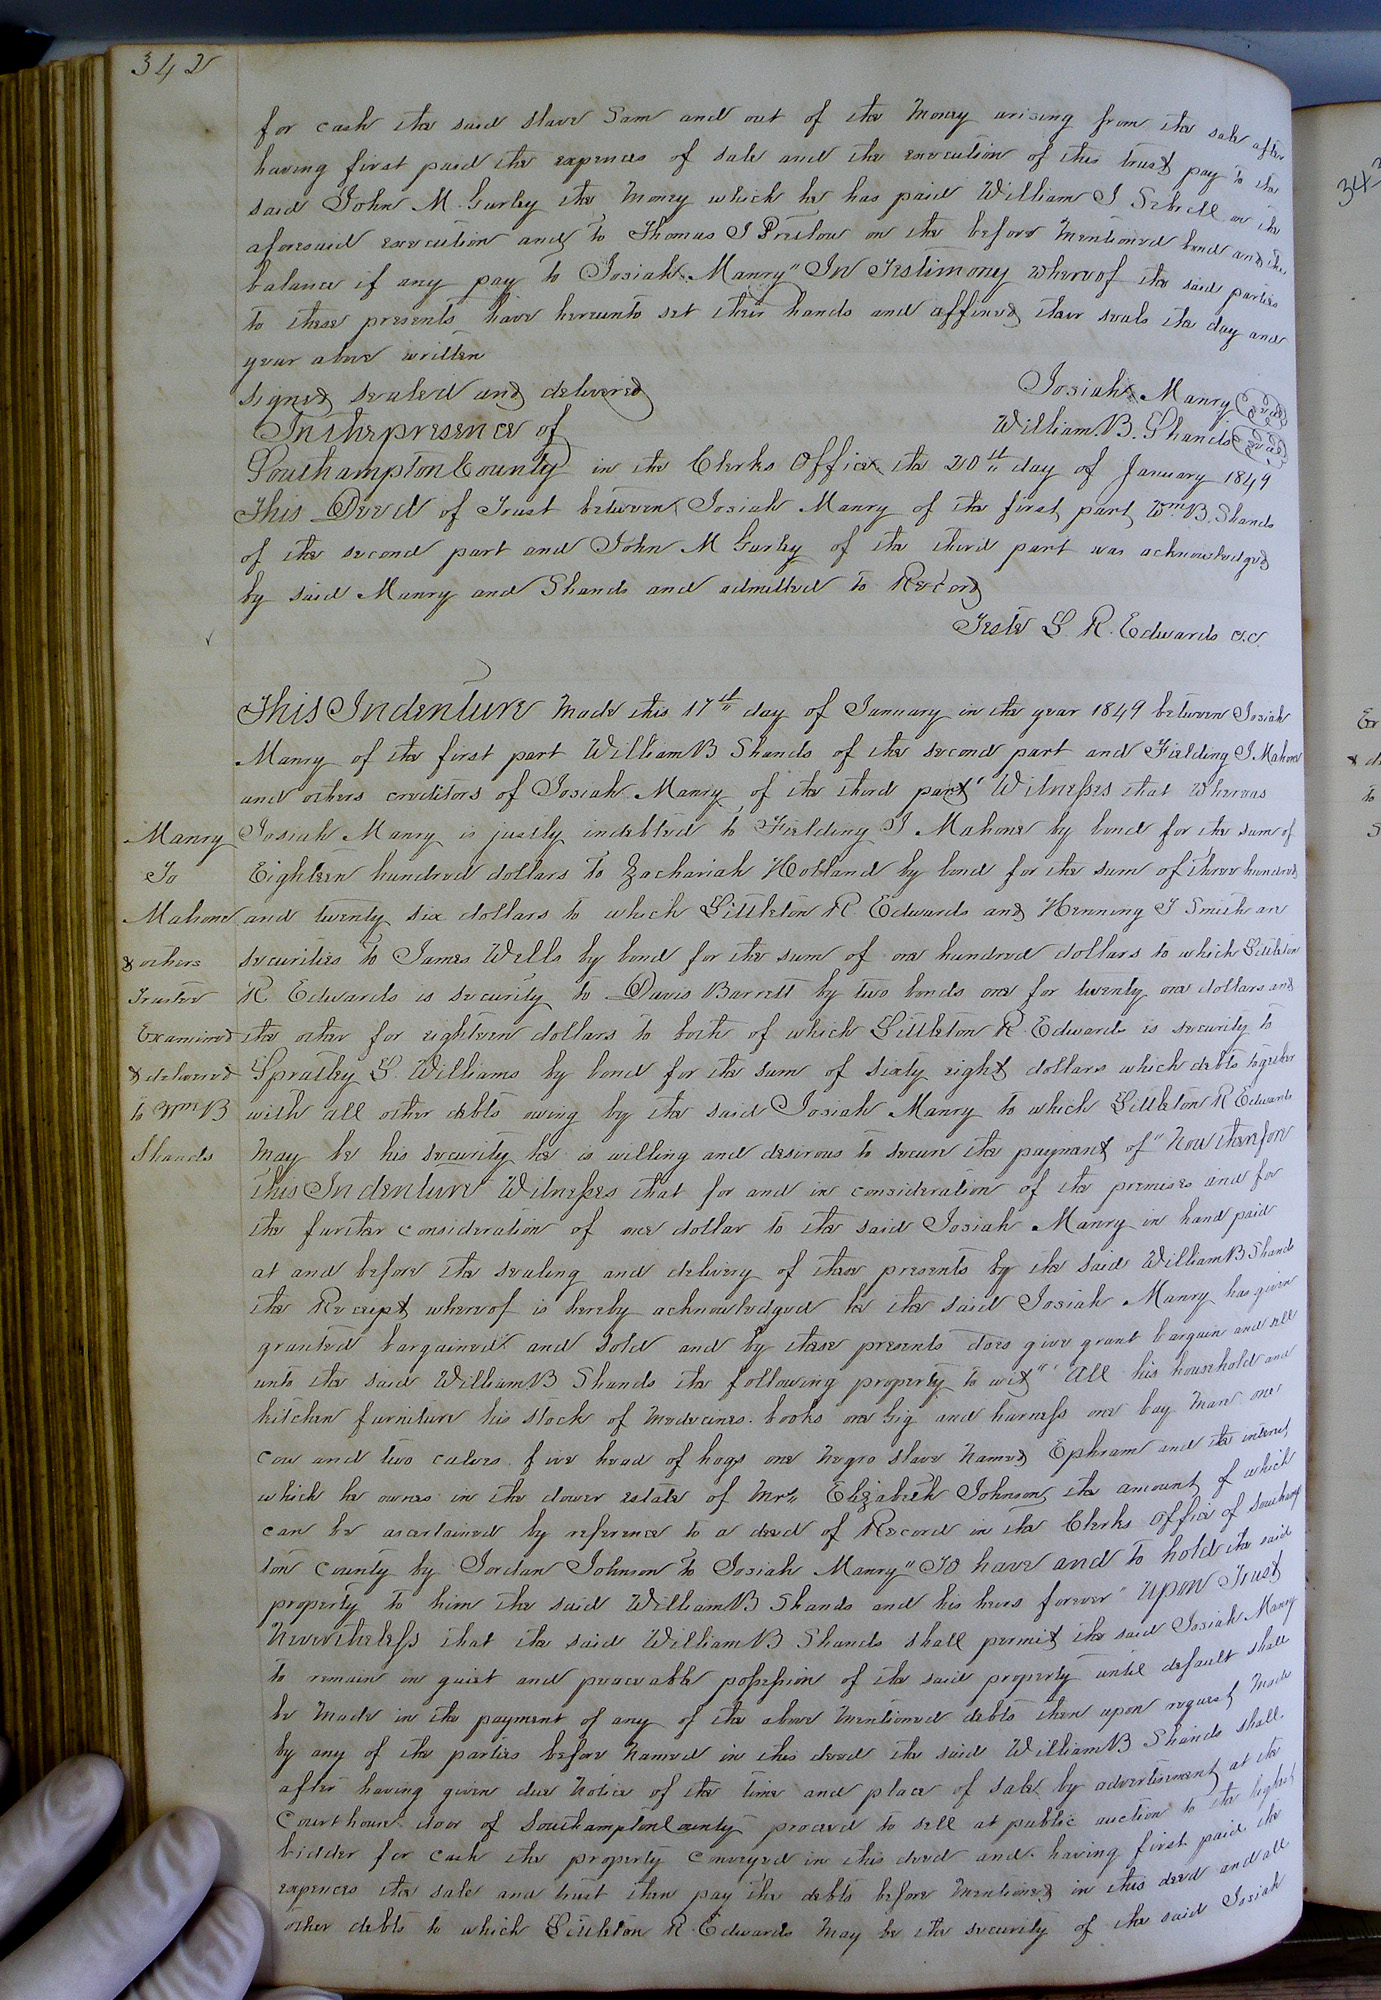 342
for cash the said slave Sam and out of the Money arising from the sale after
having first paid the expences of sale and the execution of this trust pay to the
said John M. Gurley the Money which he has paid William J Sebrell on the
aforesaid execution and to Thomas J Pretlow on the before Mentioned bond and the
balance if any pay to Josiah Manry" In Testimony whereof the said parties
to these presents have hereunto set their hands and affixed their seals the day and
year above written
Signed sealed and delivered Josiah Manry Seal
In the presence of William B. Shands Seal
Southampton County in the Clerks Office the 20th day of January 1849
This Deed of Trust between Josiah Manry of the first part, Wm B. Shands
of the second part and John M Gurley of the third part was acknowledged
by said Manry and Shands and admitted to Record
Teste L. R. Edwards c.c.
This Indenture Made this 17th day of January in the year 1849 between Josiah
Manry of the first part William B Shands of the second part and Fielding J Mahone
and others creditors of Josiah Manry of the third part" Witnesses that Whereas
Manry Josiah Manry is justly indebted to Fielding J Mahone by bond for the sum of
To Eighteen hundred dollars to Zachariah Holland by bond for the sum of three hundred
Mahone and twenty six dollars to which Littleton R. Edwards and Henning T Smith are
& others securities to James Wells by bond for the sum of one hundred dollars to which Littleton
Trustee R Edwards is security to Davis Barrett by two bonds one for twenty one dollars and
Examined the other for eighteen dollars to both of which Littleton R. Edwards is security to
& delivered Spratley S Williams by bond for the sum of sixty eight dollars which debts together
to Wm B with all other debts owing by the said Josiah Manry to which Littleton R Edwards
Shands May be his security he is willing and desirous to secure the payment of" Now therefore
this Indenture Witnesses that for and in consideration of the premises and for
the further consideration of one dollar to the said Josiah Manry in hand paid
at and before the sealing and delivery of these presents by the said William B Shands
the Receipt whereof is hereby acknowledged he the said Josiah Manry has given
granted bargained and sold and by these presents does give grant bargain and sell
unto the said William B Shands the following property to wit" All his household and
kitchen furniture his stock of Medecines. books one gig and harness one bay Mare one
cow and two calves five head of hogs one Negro slave Named Ephram and the interest
which he ownes in the dower estate of Mrs. Elizabeth Johnson, the amount of which
can be ascertained by reference to a deed of Record in the Clerks Office of Southamp
ton county by Jordan Johnson to Josiah Manry" To have and to hold the said
property to him the said William B Shands and his heirs forever" Upon Trust
Nevertheless that the said William B Shands shall permit the said Josiah Manry
to remain in quiet and peaceable possession of the said property until default shall
be Made in the payment of any of the above Mentioned debts then upon request Made
by any of the parties before Named in this deed the said William B Shands shall
after having given due Notice of the time and place of sale by advertisement at the
Courthouse door of Southampton County proceed to sell at public auction to the highest
bidder for cash the property conveyed in this deed and having first paid the
expences the sale and trust then pay the debts before Mentioned in this deed and all
other debts to which Littleton R Edwards May be the security of the said Josiah